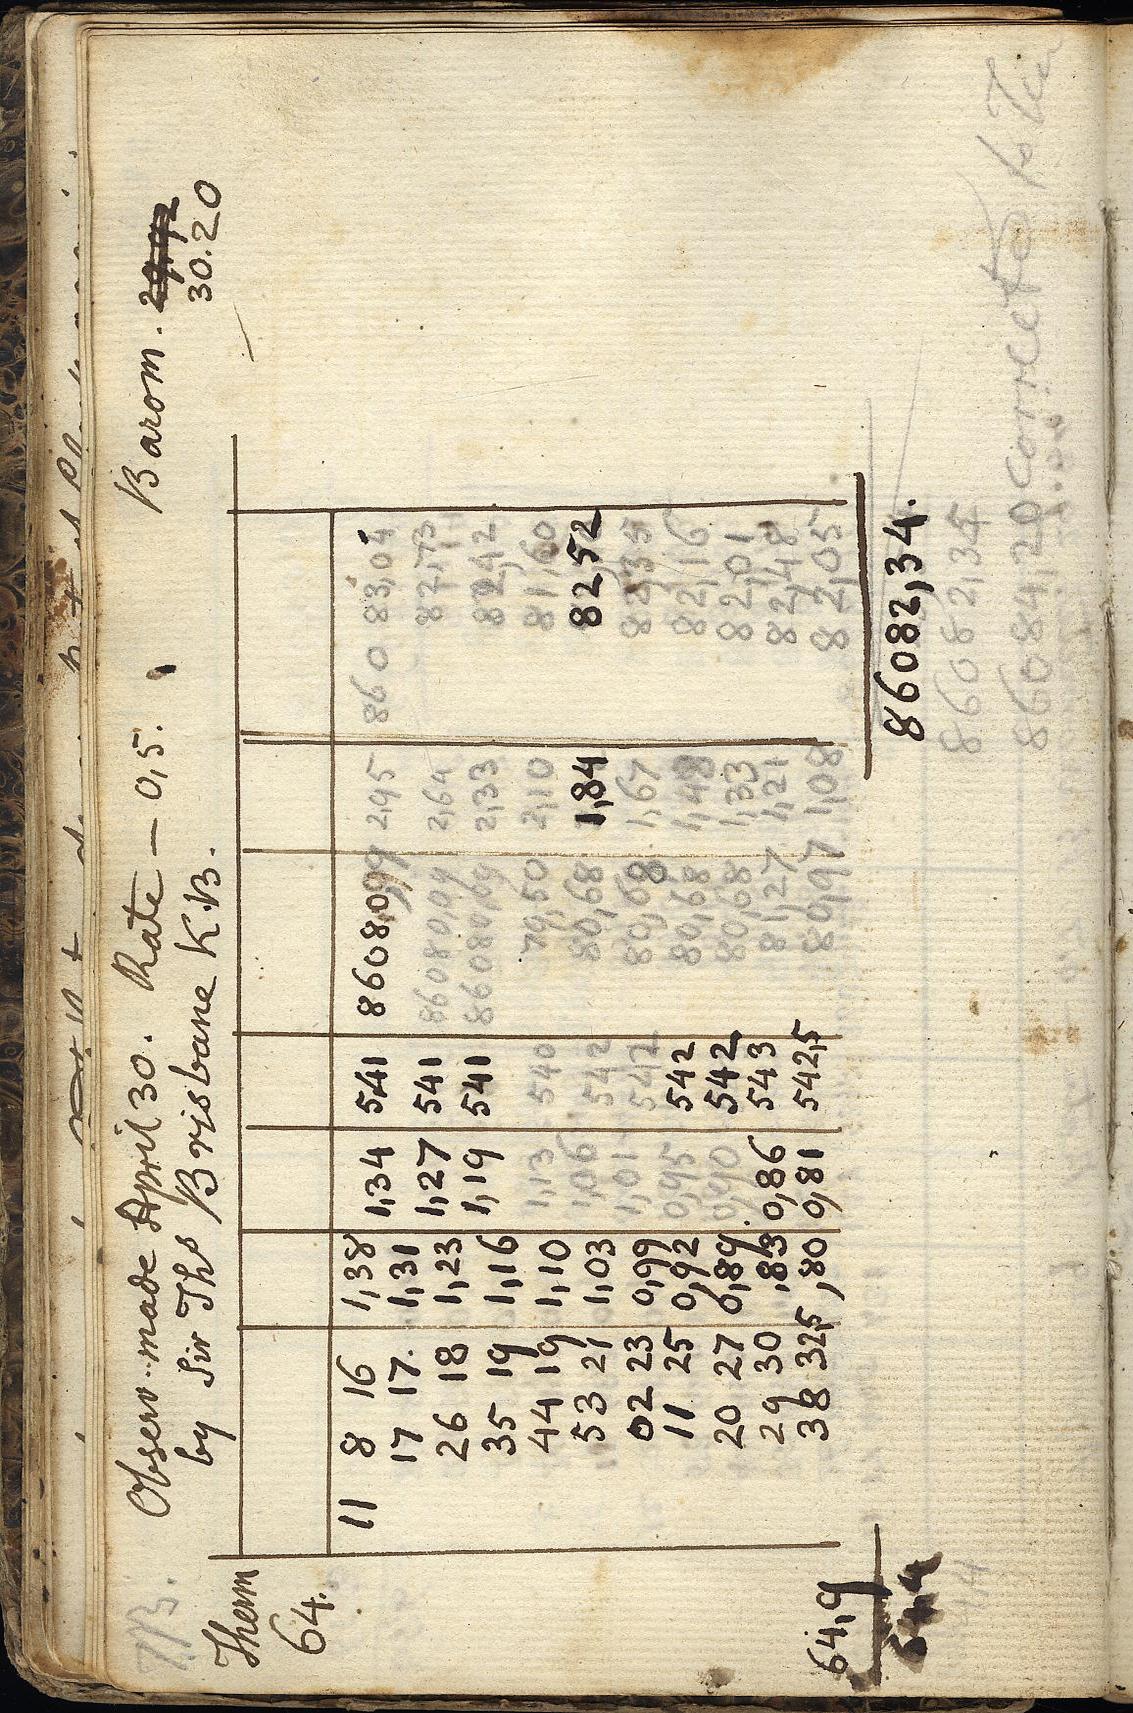 7/3. Observ. made April 30. Rate — 0,5. Barom. 29,92
by Sir Ths Brisbane K.B. 30.20
Therm
64. 11 8 16 1,38 1,34 541 86080,99 2,95 86083,04
17 17. 1,31 1,27 541 86080,09 2,64 82,73
26 18 1,23 1,19 541 86080,09 2,33 82,42
35 19 1,16 1,13 540 79,50 2,10 81,60
44 19 1,10 1,06 542 80,68 1,84 82,52
53 21 1,03 1,01 542 80,68 1,67 82,35
02 23 0,99 0,95 542 80,68 1,48 82,16
11 25 0,92 0,90 542 80,68 1,33 82,01
20 27 0,89 0,86 543 81,27 1,21 82,48
29 30 ,83 0,81 542,5 80,97 1,08 82,05
64,9 38 32,5 ,80
86082,34.
86082,34
86084,20 Correct to